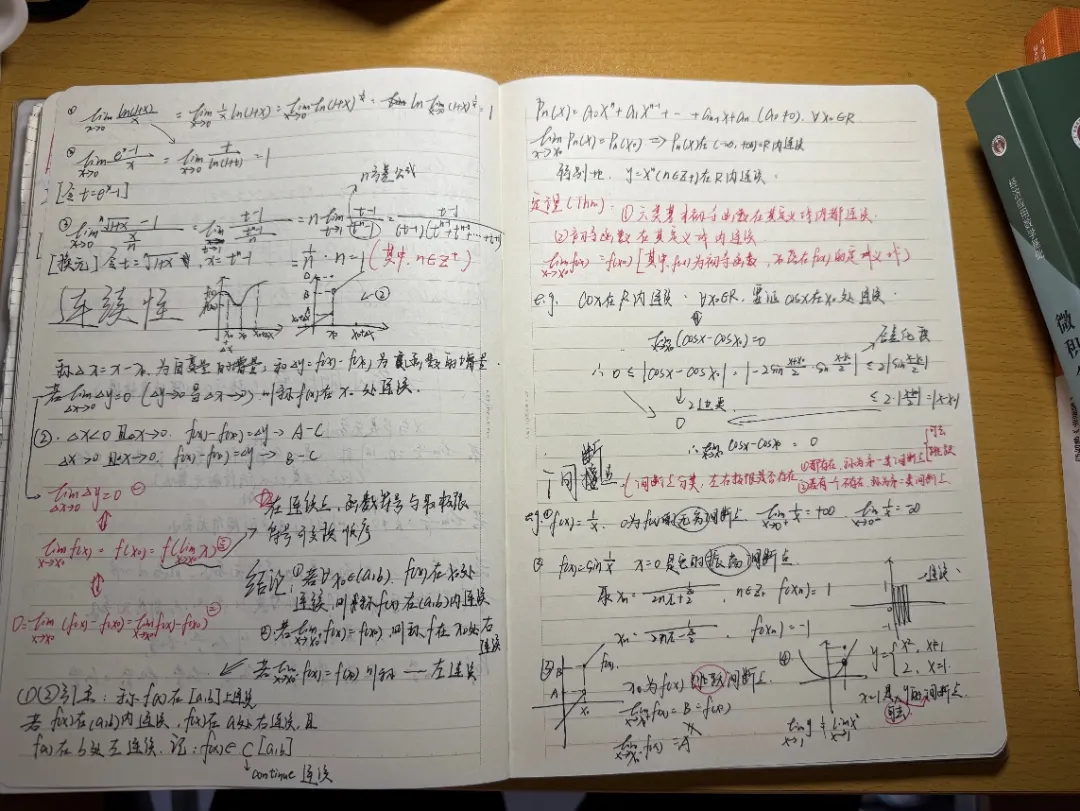 ① lim x→0 ln(1+x)/x = lim x→0 1/x ln(1+x) = lim x→0 ln(1+x)^(1/x) = ln lim x→0 (1+x)^(1/x) = 1
② lim x→0 (e^x-1)/x = lim t→0 t/ln(1+t) = 1
[令t=e^x-1]
n方差公式
③ lim x→0 (ⁿ√(1+x) -1)/(x/n) = lim t→1 (t-1)/((tⁿ-1)/n) = n·lim t→1 (t-1)/(tⁿ-1) = (t-1)/((t-1)(tⁿ⁻¹+tⁿ⁻²+…+1))
[换元] 令t=ⁿ√(1+x), x=tⁿ-1 = 1/n · n = 1 (其中, n∈Z⁺)
连续性
称△x=x-x₀为自变量的增量, 和△y=f(x)-f(x₀)为函数的增量
若lim △x→0 △y=0 (△y→0 当△x→0) 则称f(x)在x₀处连续.
②. △x<0 且△x→0. f(x)-f(x₀)=△y→A-C
△x>0 且△x→0, f(x)-f(x₀)=△y→B-C
lim △x→0 △y=0 ①
在连续点, 函数符号与取极限
符号可交换顺序
lim x→x₀ f(x) = f(x₀) = f(lim x→x₀ x) ②
0=lim x→x₀ (f(x)-f(x₀))=lim x→x₀ f(x)-f(x₀) ③
结论: ①若∀x₀∈(a,b). f(x)在x₀处
连续, 则称f(x)在(a,b)内连续
②若lim x→x₀⁺ f(x)=f(x₀), 则称f在x₀处右连续
若lim x→x₀⁻ f(x)=f(x₀) 则称——左连续
①②引来: 称f(x)在[a,b]上连续
若f(x)在(a,b)内连续, f(x)在a处右连续, 且
f(x)在b处左连续. 记: f(x)∈C[a,b]
continue 连续
Pₙ(x)=a₀xⁿ+a₁xⁿ⁻¹+…+aₙ₋₁x+aₙ. (a₀≠0). ∀x₀∈R
lim x→x₀ Pₙ(x)=Pₙ(x₀) ⇒ Pₙ(x)在(-∞,+∞)=R内连续
特别地, y=xⁿ(n∈Z+)在R内连续.
定理(Thm): ①六类基本初等函数在其定义域内都连续.
②初等函数在其定义域内连续
lim x→x₀ f(x)=f(x₀) [其中, f(x)为初等函数, x₀在f(x)的定义域]
e.g. cosx在R内连续. ∀x₀∈R. 要证cosx在x₀处连续.
lim x→x₀ (cosx-cosx₀)=0
和差化积
∴ 0≤|cosx-cosx₀|=|-2sin (x+x₀)/2 ·sin (x-x₀)/2| ≤2|sin (x-x₀)/2|
≤2·|(x-x₀)/2|=|x-x₀|
0
∴ lim x→x₀ cosx-cosx₀=0
间断点
(间断点分类, 左右极限是否存在 ①都存在, 称为第一类间断点 可去 跳跃
②至有一个不存在 称为第二类间断点.
e.g. ① f(x)=1/x. 0为f(x)的无穷间断点. lim x→0⁺ 1/x=+∞ lim x→0⁻ 1/x=-∞
② f(x)=sin 1/x x=0是它的振荡间断点.
取xₙ=1/(2nπ+π/2), n∈Z, f(xₙ)=1
连续.
xₙ=1/(2nπ-π/2), f(xₙ)=-1
③
f(x).
x₀为f(x)跳跃间断点.
lim x→x₀⁺ f(x)=B=f(x₀)
lim x→x₀⁻ f(x)=A
④
y={x², x≠1
2, x=1.
x=1是y的间断点
可去
lim x→1 y≠lim x→1 x²
微